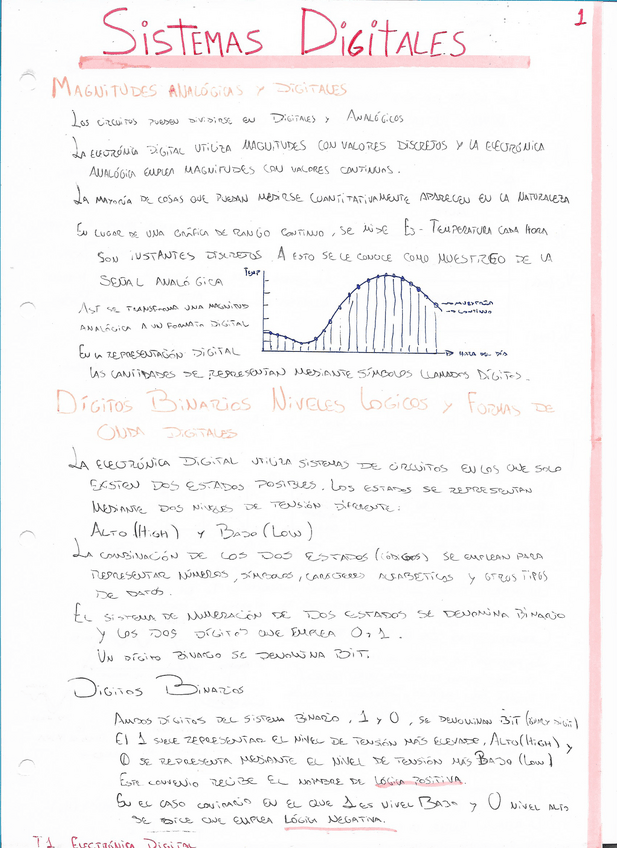 Sistemas Digitales
1
Magnitudes analógicas y digitales
Los circuitos pueden dividirse en Digitales y Analógicos
La electrónica digital utiliza magnitudes con valores discretos y la electrónica
analógica emplea magnitudes con valores continuas.
La mayoría de cosas que puedan medirse cuantitativamente aparecen en la naturaleza
En lugar de una gráfica de rango continuo, se mide Ej- Temperatura cada hora
son instantes discretos A esto se le conoce como muestreo de la
señal analógica
Temp
Así se transforma una magnitud
analógica a un formato digital
muestreo
continua
En la representación digital
hora del día
las cantidades se representan mediante símbolos llamados dígitos.
Dígitos Binarios Niveles Logicos y Formas de
onda digitales
La electrónica digital utiliza sistemas de circuitos en los que solo
existen dos estados posibles. Los estados se representan
mediante dos niveles de tensión diferente:
Alto (High) y Bajo (Low)
La combinación de los dos estados (códigos) se emplean para
representar números, símbolos, caracteres alfabeticos y otros tipos
de datos.
El sistema de numeración de dos estados se denomina binario
y los dos dígitos que emplea 0 y 1.
Un dígito binario se denomina bit.
Digitos Binarios
Ambos dígitos del sistema binario, 1 y 0, se denominan bit (binary digit)
El 1 suele representar el nivel de tensión más elevado, Alto (High) y
0 se representa mediante el nivel de tensión más Bajo (Low)
Este convenio recibe el nombre de lógica positiva.
En el caso contrario en el que 1 es nivel Bajo y 0 nivel alto
se dice que emplea lógica negativa.
T1 Electrónica Digital